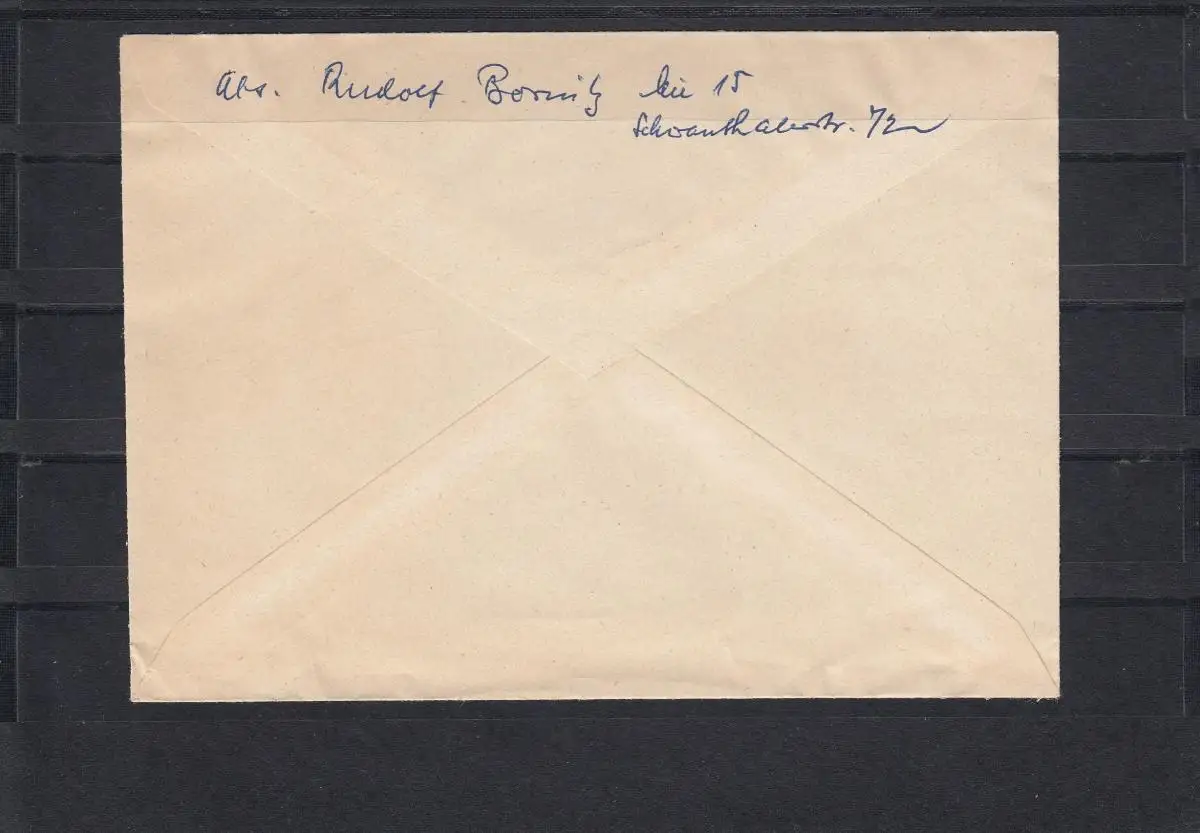 Abs. Rudolf Bornitz Mü 15
Schwanthalerstr.